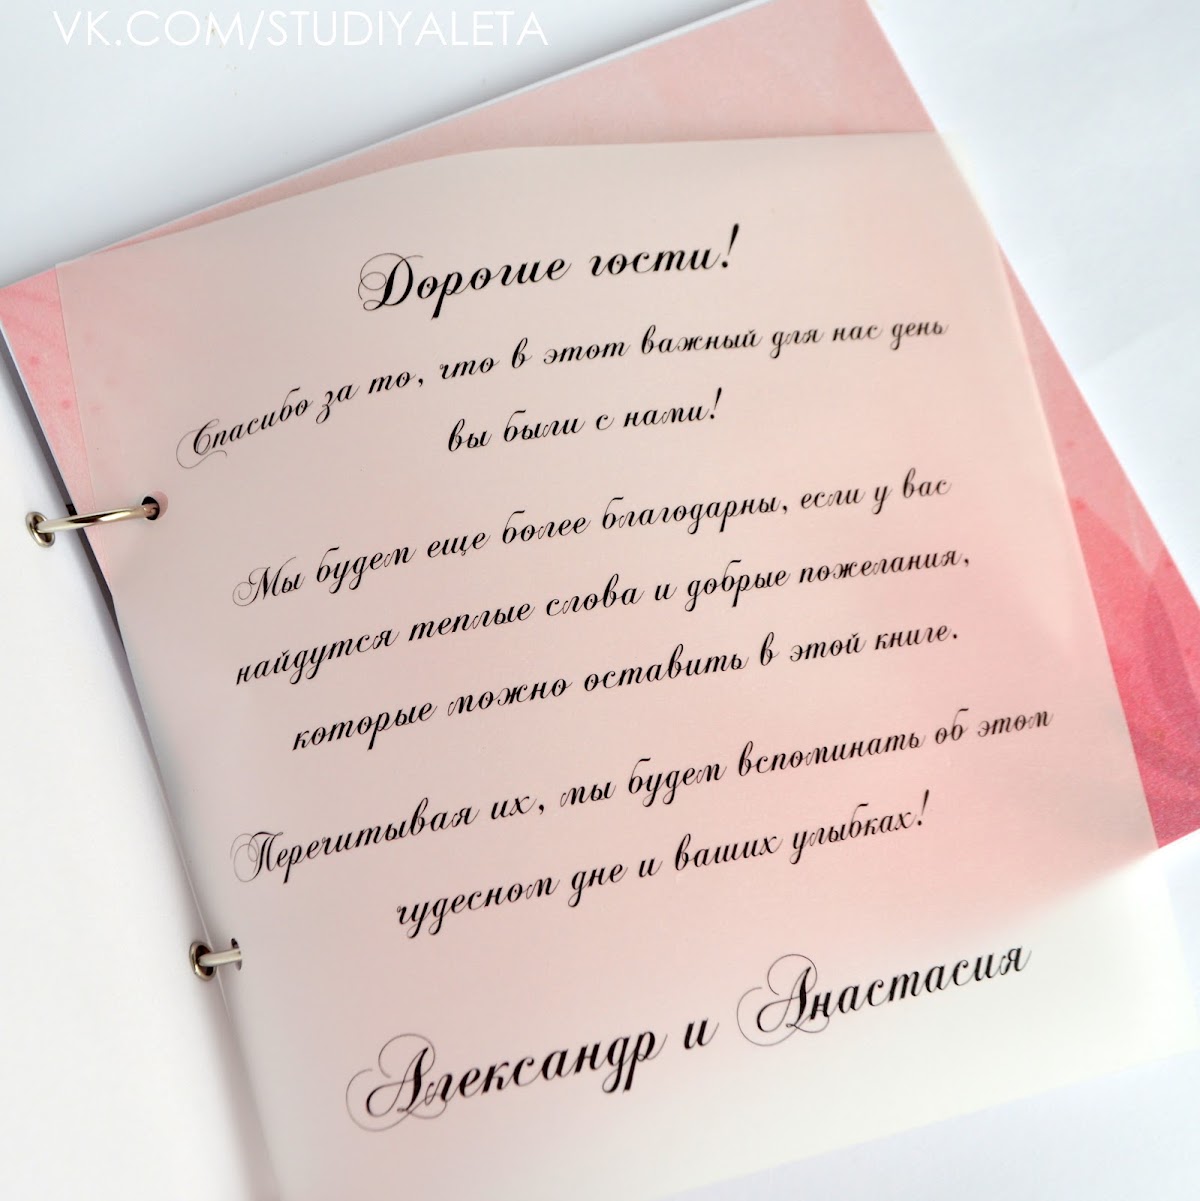 VK.COM/STUDIYALETA
Дорогие гости!
Спасибо за то, что в этот важный для нас день
вы были с нами!
Мы будем еще более благодарны, если у вас
найдутся теплые слова и добрые пожелания,
которые можно оставить в этой книге.
Перечитывая их, мы будем вспоминать об этом
чудесном дне и ваших улыбках!
Александр и Анастасия